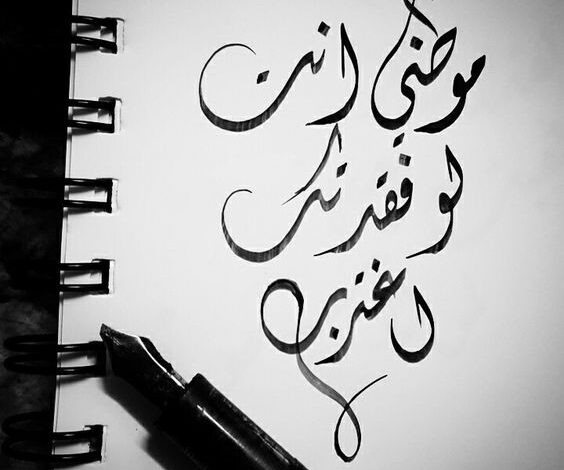 موطني انت
لو فقدتك
اغترب